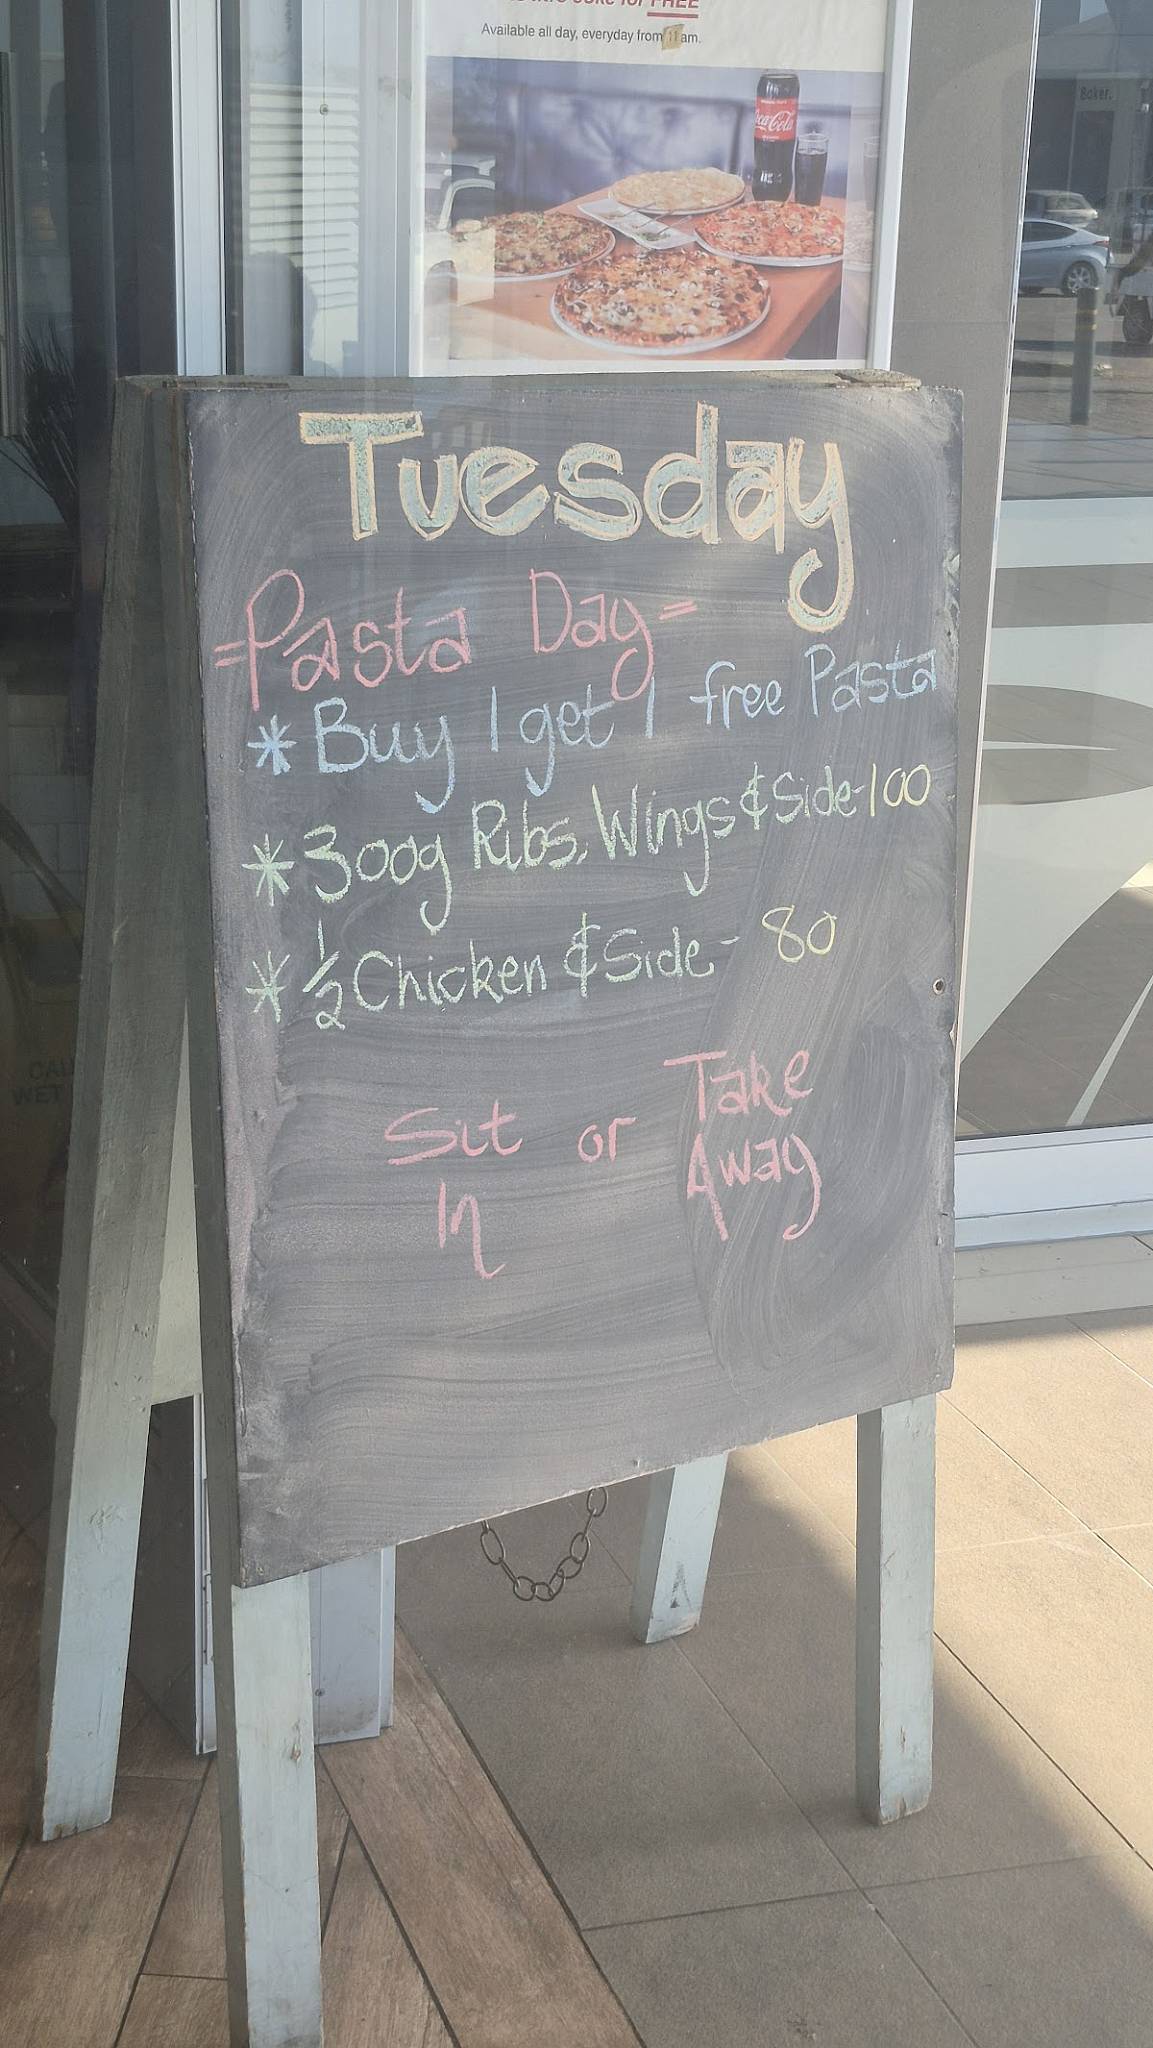 FREE
Available all day, everyday from 11am.
Coca-Cola
Baker.
Tuesday
=Pasta Day=
* Buy 1 get 1 free Pasta
* 300g Ribs, Wings & Side-100
* 1/2 Chicken & Side- 80
Sit or Take
In Away